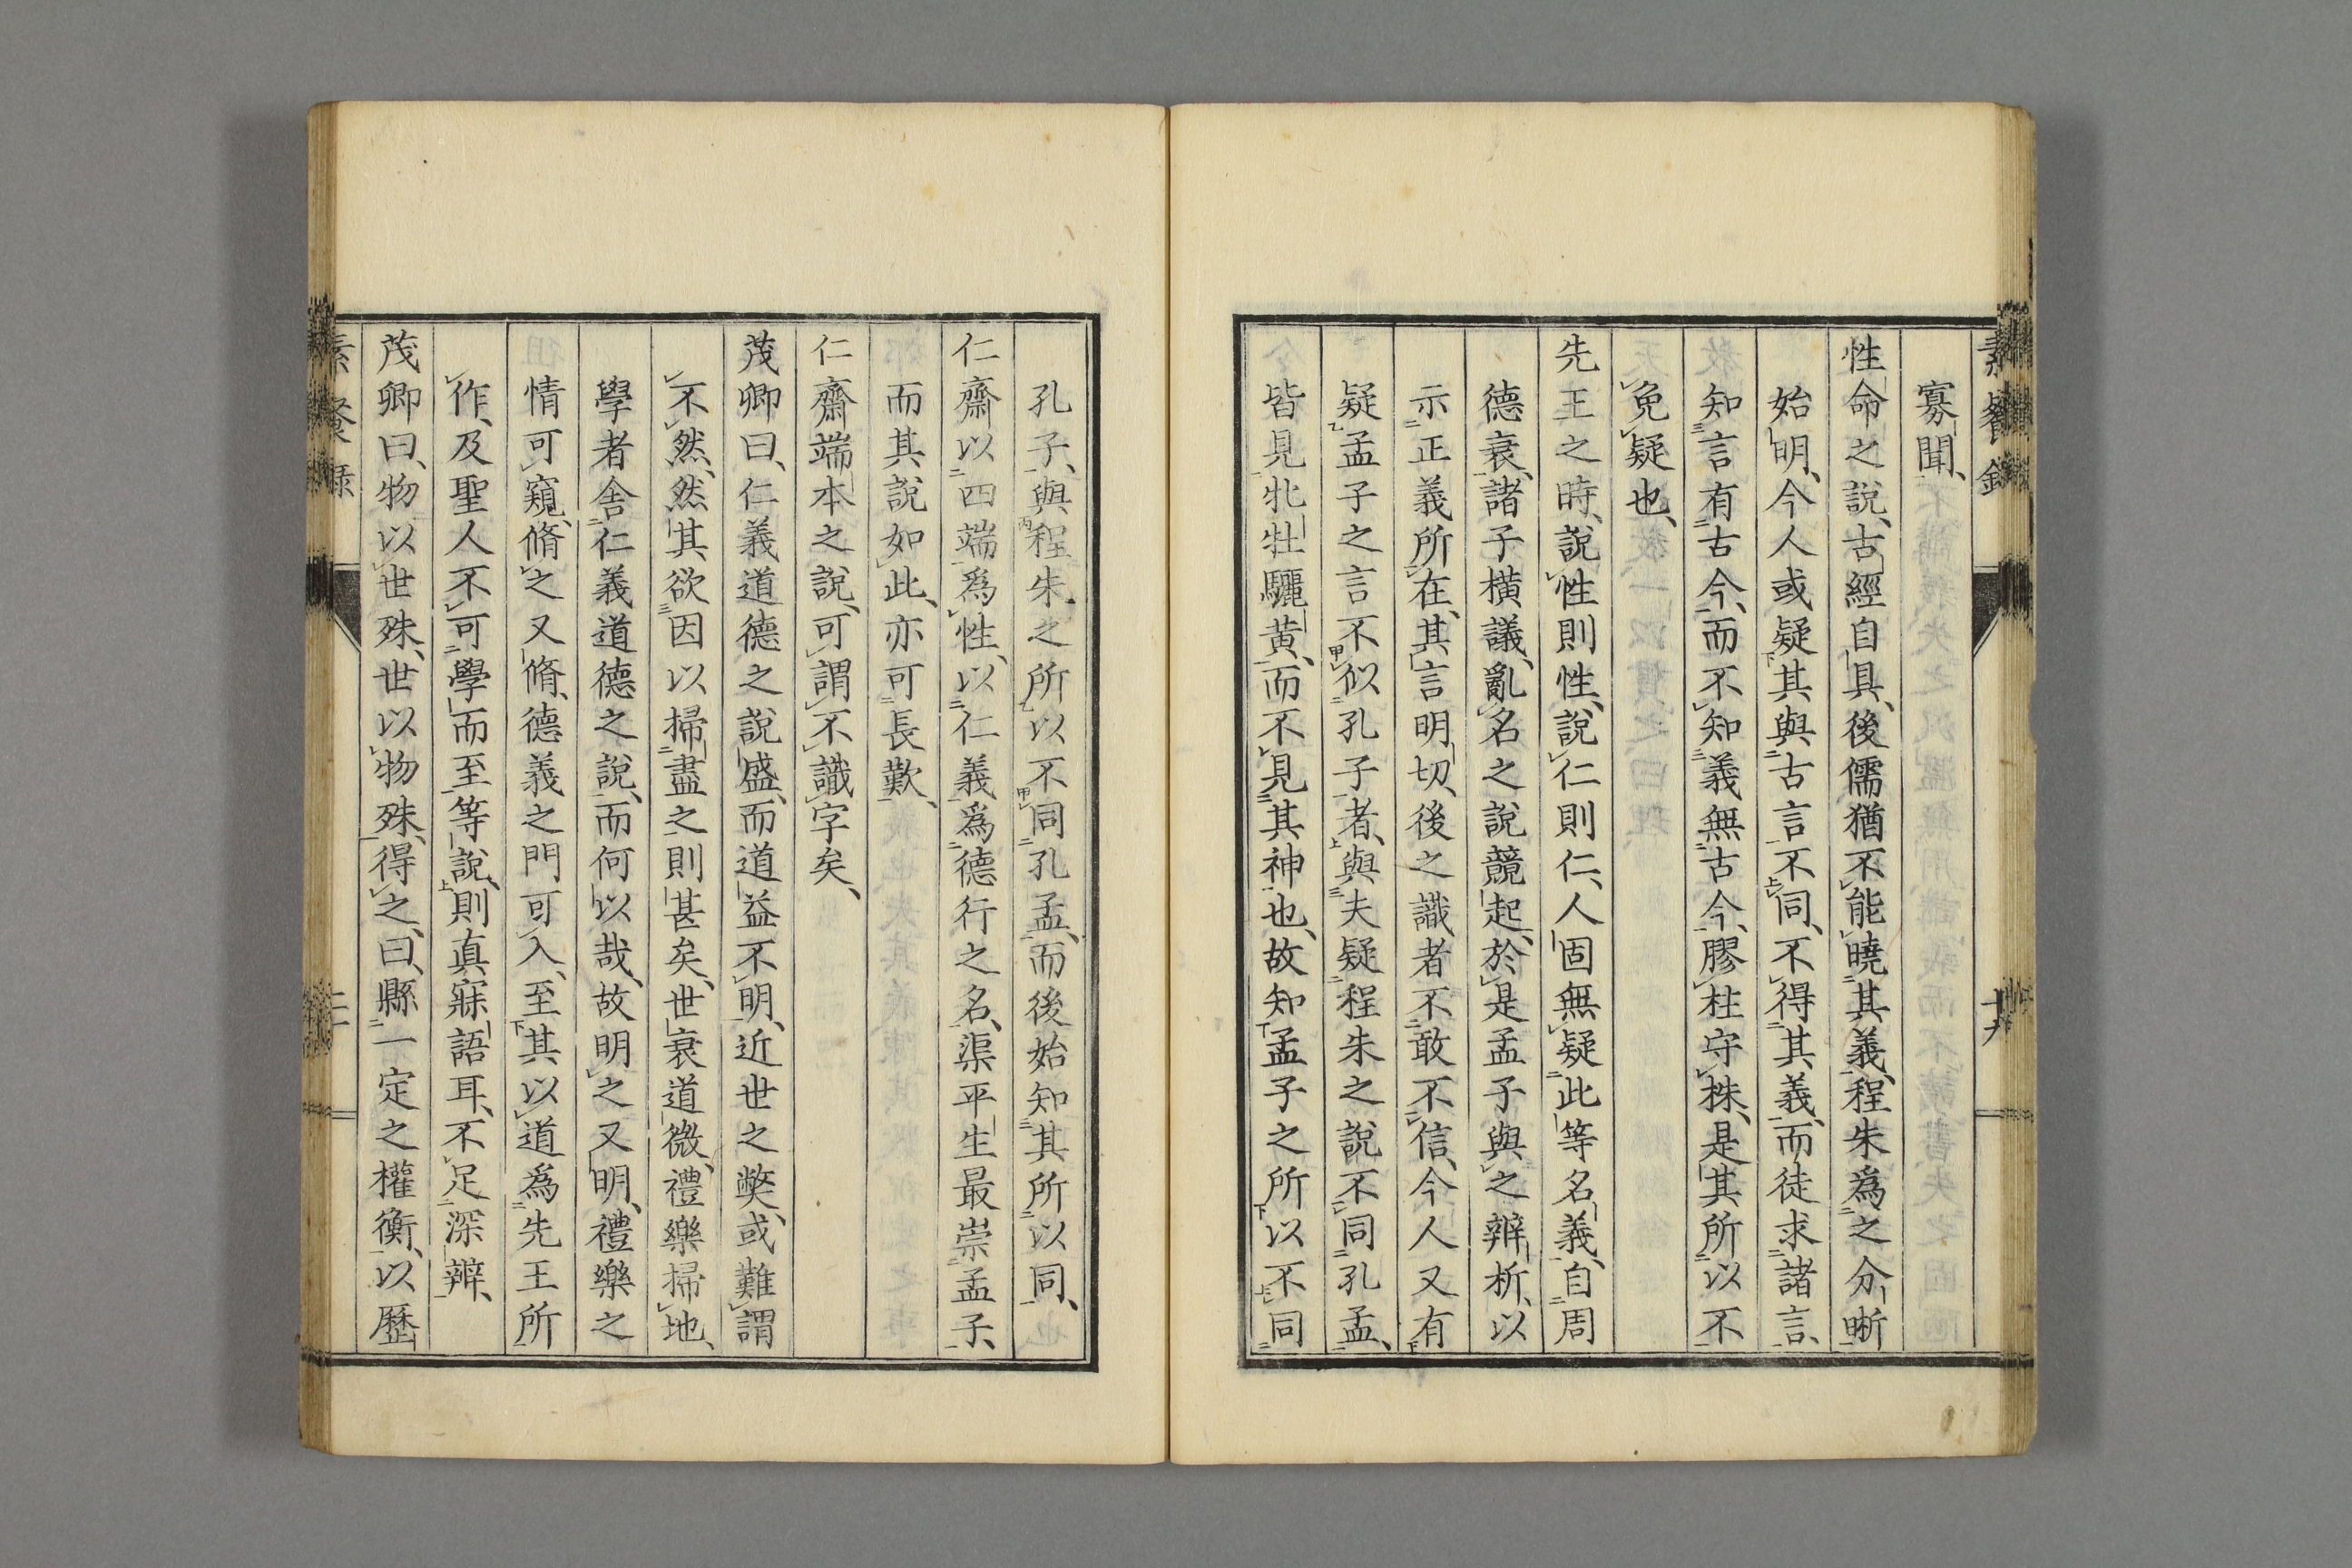 寡聞、
性命之說、古經自具、後儒猶不能曉其義、程朱爲之分晣
始明、今人或疑其與古言不同、不得其義、而徒求諸言、
知言有古今、而不知義無古今、膠柱守株、是其所以不
免疑也、
先王之時、說性則性、說仁則仁、人固無疑此等名義、自周
德衰、諸子橫議、亂名之說競起、於是孟子與之辨析、以
示正義所在、其言明切、後之識者不敢不信、今人又有
疑孟子之言不似孔子者、與夫疑程朱之說不同孔孟、
皆見牝牡驪黃、而不見其神也、故知孟子之所以不同
孔子、與程朱之所以不同孔孟、而後始知其所以同、
仁齋以四端爲性、以仁義爲德行之名、渠平生最崇孟子、
而其說如此、亦可長歎、
仁齋端本之說、可謂不識字矣、
茂卿曰、仁義道德之說盛、而道益不明、近世之獘、或難謂
不然、然其欲因以掃盡之則甚矣、世衰道微、禮樂掃地、
學者舍仁義道德之說、而何以哉、故明之又明、禮樂之
情可窺、脩之又脩、德義之門可入、至其以道爲先王所
作、及聖人不可學而至等說、則真寐語耳、不足深辨、
茂卿曰、物以世殊、世以物殊、得之、曰、縣一定之權衡、以歷